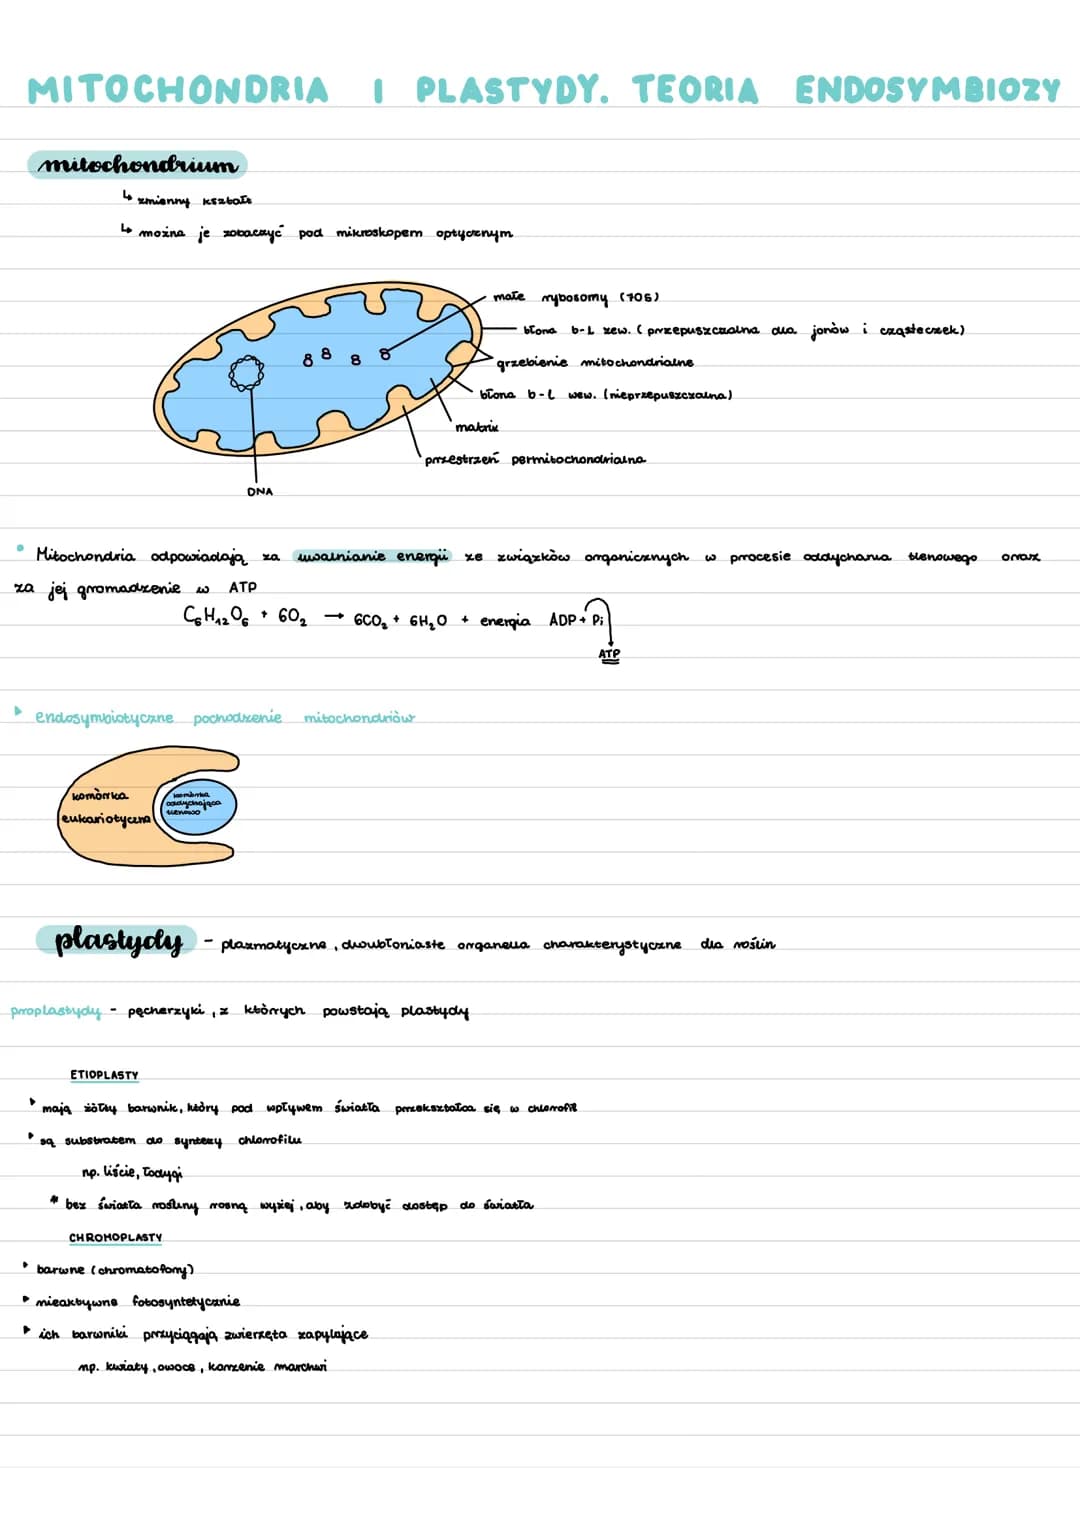 MITOCHONDRIA I PLASTYDY. TEORIA ENDOSYMBIOZY
mitochondrium
↳ zmienny kształt
↳ można je zobaczyć pod mikroskopem optycznym
małe rybosomy (70S)
błona b-ł zew. (przepuszczalna dla jonów i cząsteczek)
8 8 8 8
grzebienie mitochondrialne
błona b-ł wew. (nieprzepuszczalna)
matrix
przestrzeń permitochondrialna
DNA
• Mitochondria odpowiadają za uwalnianie energii ze związków organicznych w procesie oddychania tlenowego oraz
za jej gromadzenie w ATP
C₆H₁₂O₆ + 6O₂ → 6CO₂ + 6H₂O + energia ADP + Pi
ATP
▸ endosymbiotyczne pochodzenie mitochondriów
komórka
eukariotyczna
komórka
oddychająca
tlenowo
plastydy - plazmatyczne, dwubłoniaste organella charakterystyczne dla roślin
proplastydy - pęcherzyki, z których powstają plastydy
ETIOPLASTY
▸ mają żółty barwnik, który pod wpływem światła przekształca się w chlorofil
▸ są substratem do syntezy chlorofilu
np. liście, łodygi
* bez światła rośliny rosną wyżej, aby zdobyć dostęp do światła
CHROMOPLASTY
▸ barwne (chromatofony)
▸ nieaktywne fotosyntetycznie
▸ ich barwniki przyciągają zwierzęta zapylające
np. kwiaty, owoce, korzenie marchwi